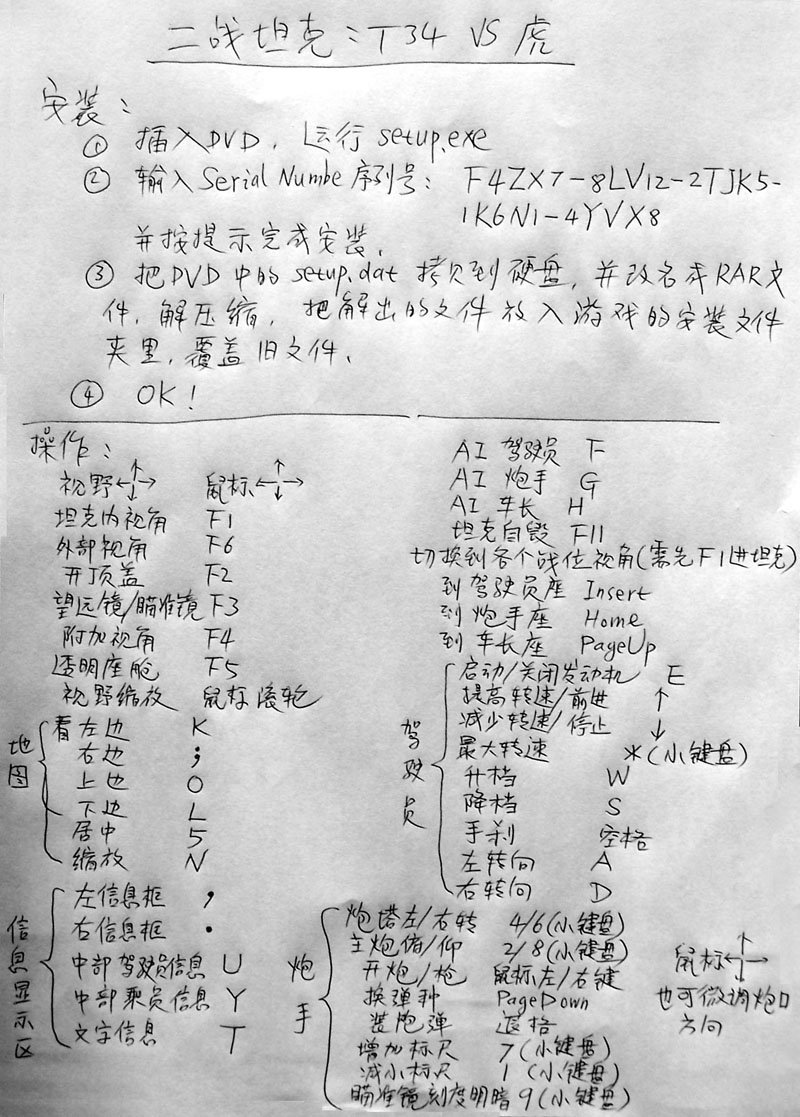 二战坦克：T34 VS 虎
安装：
① 插入DVD，运行 setup.exe
② 输入 Serial Numbe 序列号： F4ZX7-8LV12-2TJK5-
1K6N1-4YVX8
并按提示完成安装．
③ 把DVD中的setup.dat 拷贝到硬盘，并改名成RAR文
件，解压缩，把解出的文件放入游戏的安装文件
夹里，覆盖旧文件．
④ OK！
操作：
视野←↑↓→ 鼠标←↑↓→
坦克内视角 F1
外部视角 F6
开顶盖 F2
望远镜/瞄准镜 F3
附加视角 F4
透明座舱 F5
视野缩放 鼠标滚轮
地图
看左边 K
右边 ;
上边 O
下边 L
居中 5
缩放 N
信息显示区
左信息框 ,
右信息框 .
中部驾驶员信息 U
中部乘员信息 Y
文字信息 T
AI 驾驶员 F
AI 炮手 G
AI 车长 H
坦克自毁 F11
切换到各个战位视角(需先F1进坦克)
到驾驶员座 Insert
到炮手座 Home
到车长座 PageUp
驾驶员
启动/关闭发动机 E
提高转速/前进 ↑
减少转速/停止 ↓
最大转速 *(小键盘)
升档 W
降档 S
手刹 空格
左转向 A
右转向 D
炮手
炮塔左/右转 4/6(小键盘)
主炮俯/仰 2/8(小键盘)
开炮/枪 鼠标左/右键
换弹种 PageDown
装炮弹 退格
增加标尺 7(小键盘)
减小标尺 1(小键盘)
瞄准镜刻度明暗 9(小键盘)
鼠标←↑↓→
也可微调炮口
方向